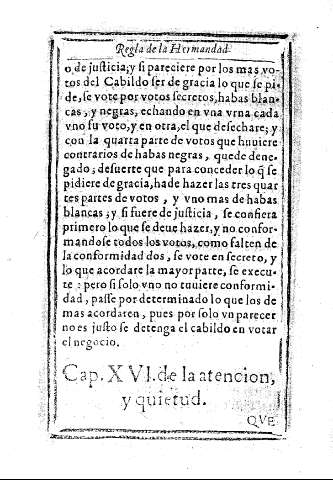 Regla de la Hermandad.
o de justicia; y si pareciere por los mas vo-
tos del Cabildo ser de gracia lo que se pi-
de, se vote por votos secretos, habas blan-
cas, y negras, echando en vna vrna cada
vno su voto, y en otra, el que desechare; y
con la quarta parte de votos que huuiere
contrarios de habas negras, quede dene-
gado; desuerte que para conceder lo q̃ se
pidiere de gracia, ha de hazer las tres quar
tes partes de votos, y vno mas de habas
blancas; y si fuere de justicia, se confiera
primero lo que se deue hazer, y no confor-
mandose todos los votos, como falten de
la conformidad dos, se vote en secreto, y
lo que acordare la mayor parte, se execu-
te: pero si solo vno no tuuiere conformi-
dad, passe por determinado lo que los de
mas acordaren, pues por solo vn parecer
no es justo se detenga el cabildo en votar
el negocio.
Cap. XVI. de la atencion,
y quietud.
QVE